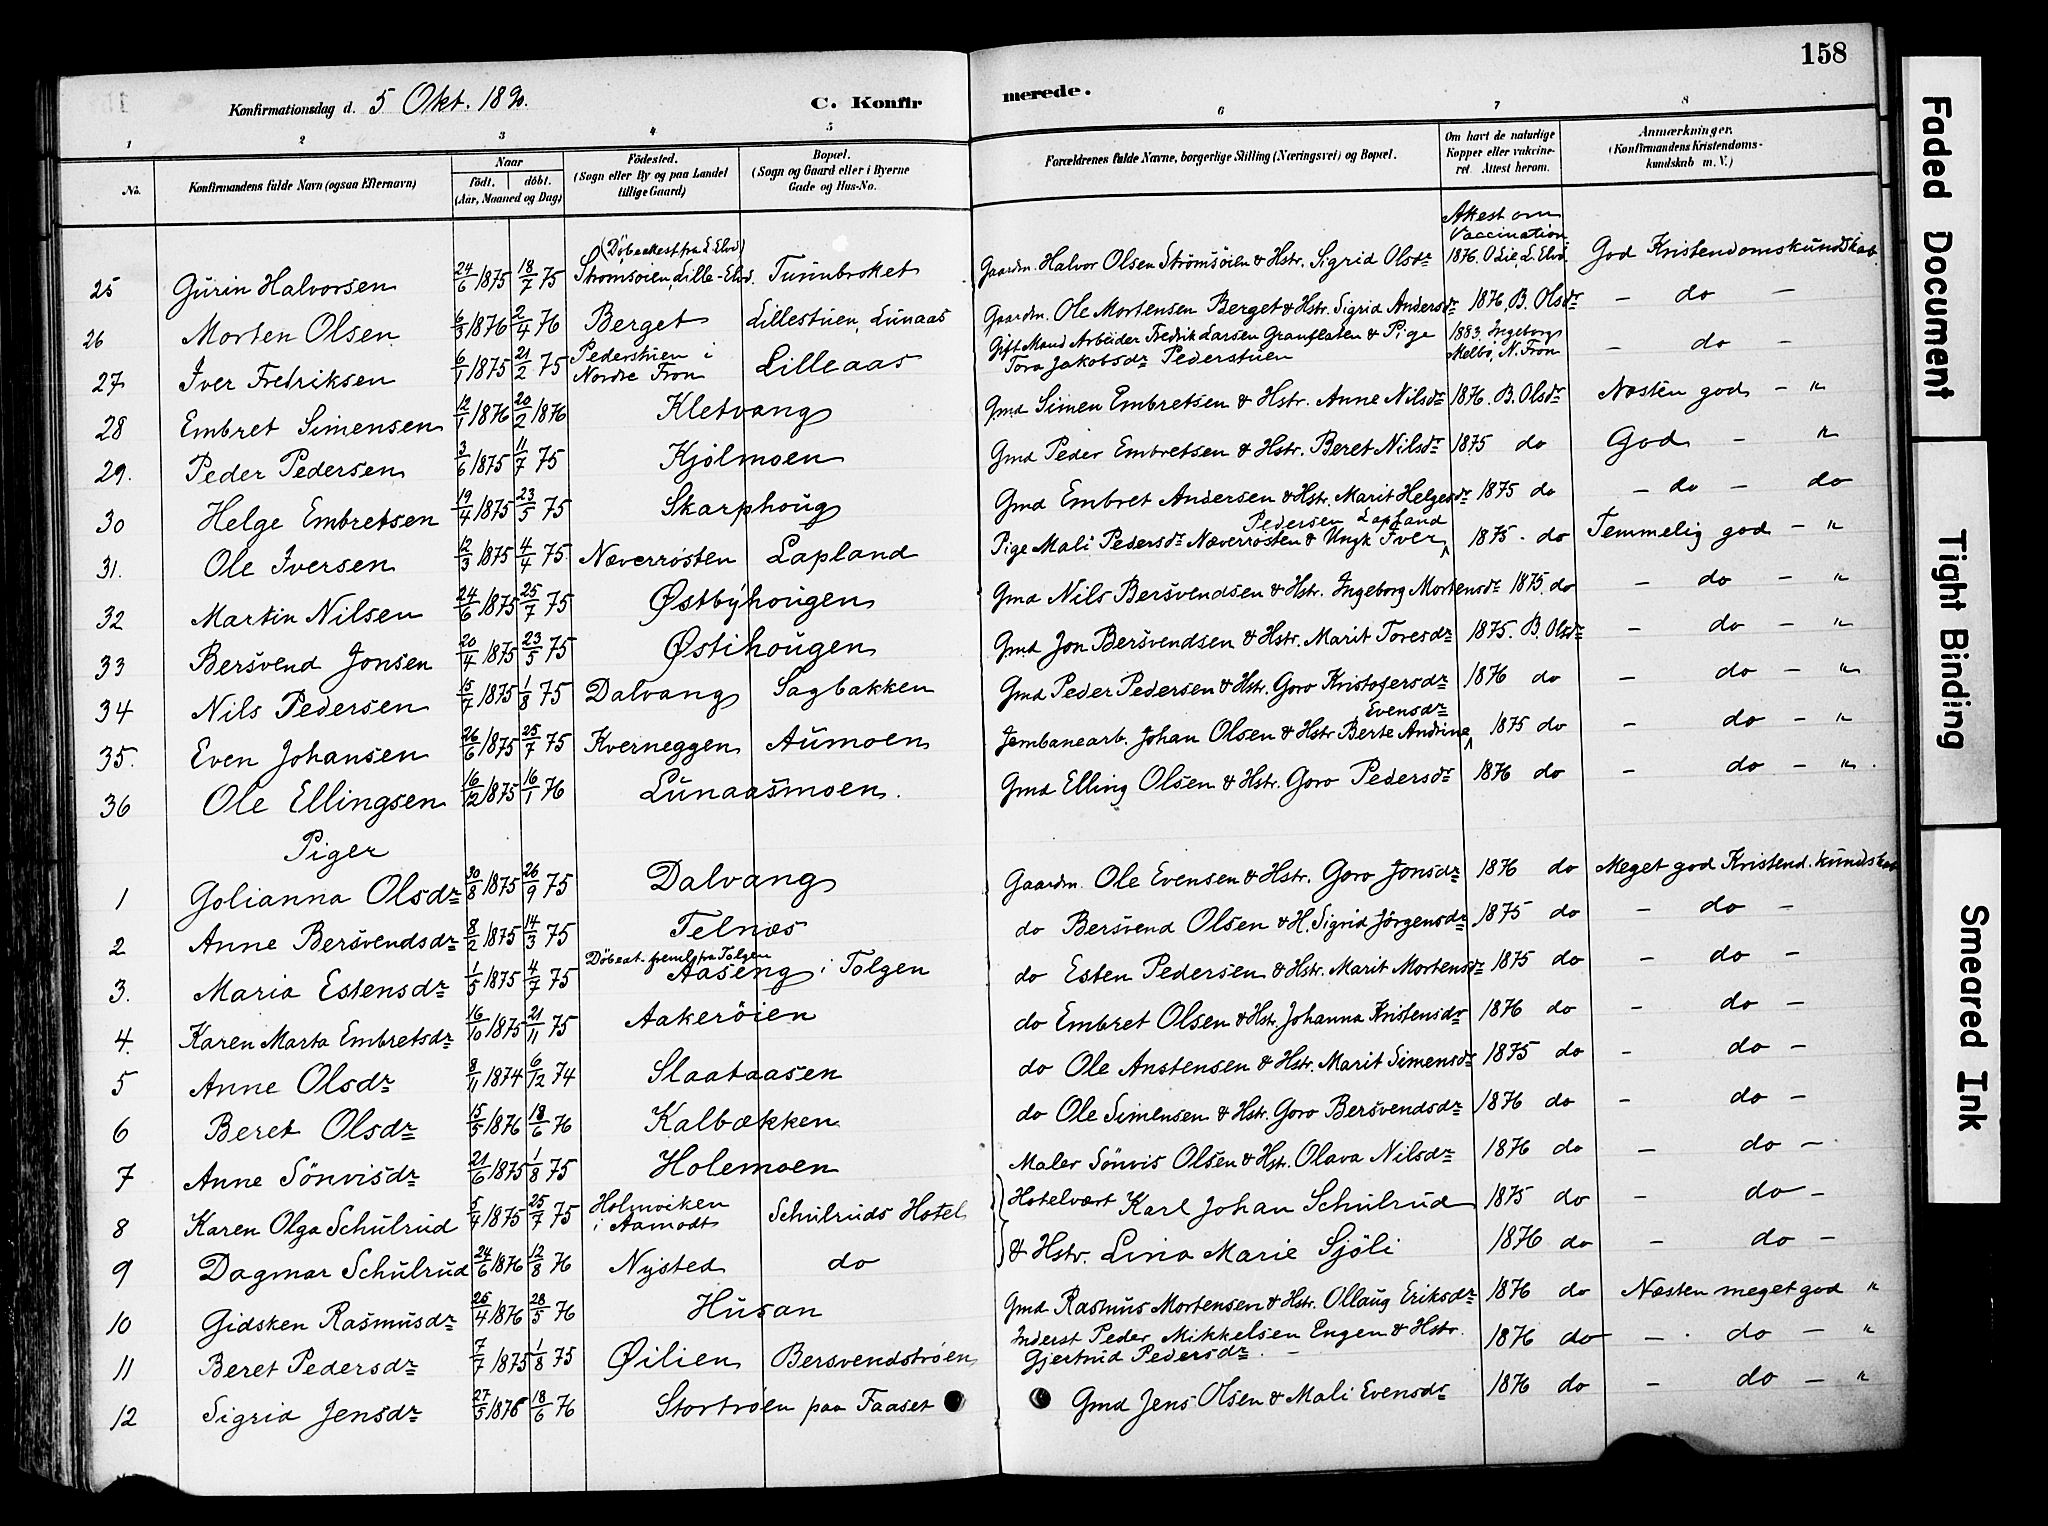 158
Konfirmationsdag d. 5 Okt. 1890. C. Konfirmerede.
1 2 3 4 5 6 7 8
No. Konfirmandens fulde Navn (ogsaa Efternavn) Naar födt. döbt. (Aar, Maaned og Dag) Födested. (Sogn eller By og paa Landet tillige Gaard) Bopæl. (Sogn og Gaard eller i Byerne Gade og Hus-No. Forældrenes fulde Navne, borgerlige Stilling (Næringsvei) og Bopæl. Om havt de naturlige Kopper eller vakcineret. Attest herom. Anmærkninger. (Konfirmandens Kristendomskundskab m. V.)
25 Gurin Halvorsen 24/6 1875 18/7 75 (Döbsattest fra L. Elvd) Strömsöien, Lille-Elvd. Tunnbroket Gaardm. Halvor Olsen Strömsöien & Hstr. Sigrid Olsdr Attest om Vaccination 1876. O Lie, L. Elvd. God Kristendomskundskab
26 Morten Olsen 6/3 1876 2/4 76 Berget Lillestuen, Lunaas Gaardm. Ole Mortensen Berget & Hstr. Sigrid Andersdr 1876, B. Olsdr – do –
27 Iver Fredriksen 6/1 1875 21/2 75 Pederstuen i Nordre Fron Lilleaas Gift Mand Arbeider Fredrik Larsen Granflaten & Pige Tora Jakobsdr Pederstuen 1883. Ingeborg Melbö, N. Fron – do –
28 Embret Simensen 12/1 1876 20/2 1876 Kletvang Gmd Simen Embretsen & Hstr. Anne Nilsdr 1876. B. Olsdr Næsten god – "
29. Peder Pedersen 3/6 1875 11/7 75 Kjölmoen Gmd Peder Embretsen & Hstr. Beret Nilsdr 1875 do God – "
30 Helge Embretsen 19/4 1875 23/5 75 Skarphoug Gmd Embret Andersen & Hstr. Marit Helgesdr 1875 do – do – do
31. Ole Iversen 12/3 1875 4/4 75 Næverrösten Lapland Pige Mali Pedersdr Næverrösten & Ungk Iver Pedersen Lapland 1875. do Temmelig god – "
32 Martin Nilsen 24/6 1875 25/7 75 Østbyhougen Gmd Nils Bersvendsen & Hstr. Ingeborg Mortensdr 1875. do – do – "
33 Bersvend Jonsen 20/4 1875 23/5 75 Østihougen Gmd Jon Bersvendsen & Hstr. Marit Toresdr 1875. B. Olsdr – do – "
34 Nils Pedersen 15/7 1875 1/8 75 Dalvang Sagbakken Gmd Peder Pedersen & Hstr. Goro Kristofersdr 1876 do – do – "
35. Even Johansen 26/6 1875 25/7 75 Kverneggen Aumoen Jernbanearb. Johan Olsen & Hstr Berte Andrine Evensdr 1875 do – do – "
36 Ole Ellingsen 16/12 1875 16/1 76 Lunaasmoen. Gmd Elling Olsen & Hstr. Goro Pedersdr 1876 do – do – "
Piger
1 Golianna Olsdr 30/8 1875 26/9 75 Dalvang Gaardm. Ole Evensen & Hstr. Goro Jonsdr 1876 do Meget god Kristend. kundskab
2 Anne Bersvendsdr 8/2 1875 14/3 75 Telnæs do Bersvend Olsen & H. Sigrid Jörgensdr 1875 do – do –
3. Maria Estensdr 1/5 1875 4/7 75 Döbeat. freml. fra Tolgen Aaseng i Tolgen do Esten Pedersen & Hstr. Marit Mortensdr 1875 do – do –
4. Karen Marta Embretsdr 16/10 1875 21/11 75 Aakeröien do Embret Olsen & Hstr. Johanna Kristensdr 1876 do – do –
5 Anne Olsdr 8/11 1874 6/12 74 Slaataasen do Ole Anstensen & Hstr. Marit Simensdr 1875 do – do –
6 Beret Olsdr 15/5 1876 18/6 76 Kalbækken do Ole Simensen & Hstr. Goro Bersvendsdr 1876 do – do –
7 Anne Sönvisdr 21/6 1875 1/8 75 Holemoen Maler Sönvis Olsen & Hstr. Olava Nilsdr 1876 do – do –
8 Karen Olga Schulrud 5/4 1875 25/7 75 Holmviken i Aamodt Schulruds Hotel Hotelvært Karl Johan Schulrud 1875 do – do –
9 Dagmar Schulrud 24/6 1876 12/8 76 Nysted do & Hstr. Lina Marie Sjöli 1876 do – do –
10 Gidsken Rasmusdr 25/4 1876 28/5 76 Husan Gmd Rasmus Mortensen & Hstr. Ollaug Eriksdr 1876 do Næsten meget god "
11 Beret Pedersdr 7/7 1875 1/8 75 Øilien Bersvendströen Inderst Peder Mikkelsen Engen & Hstr. Gjertrud Pedersdr. – 1876 do – do – "
12 Sigrid Jensdr 27/5 1876 18/6 76 Stortröen paa Faaset Gmd Jens Olsen & Mali Evensdr 1876 do – do – "
Faded Document
Tight Binding
Smeared Ink